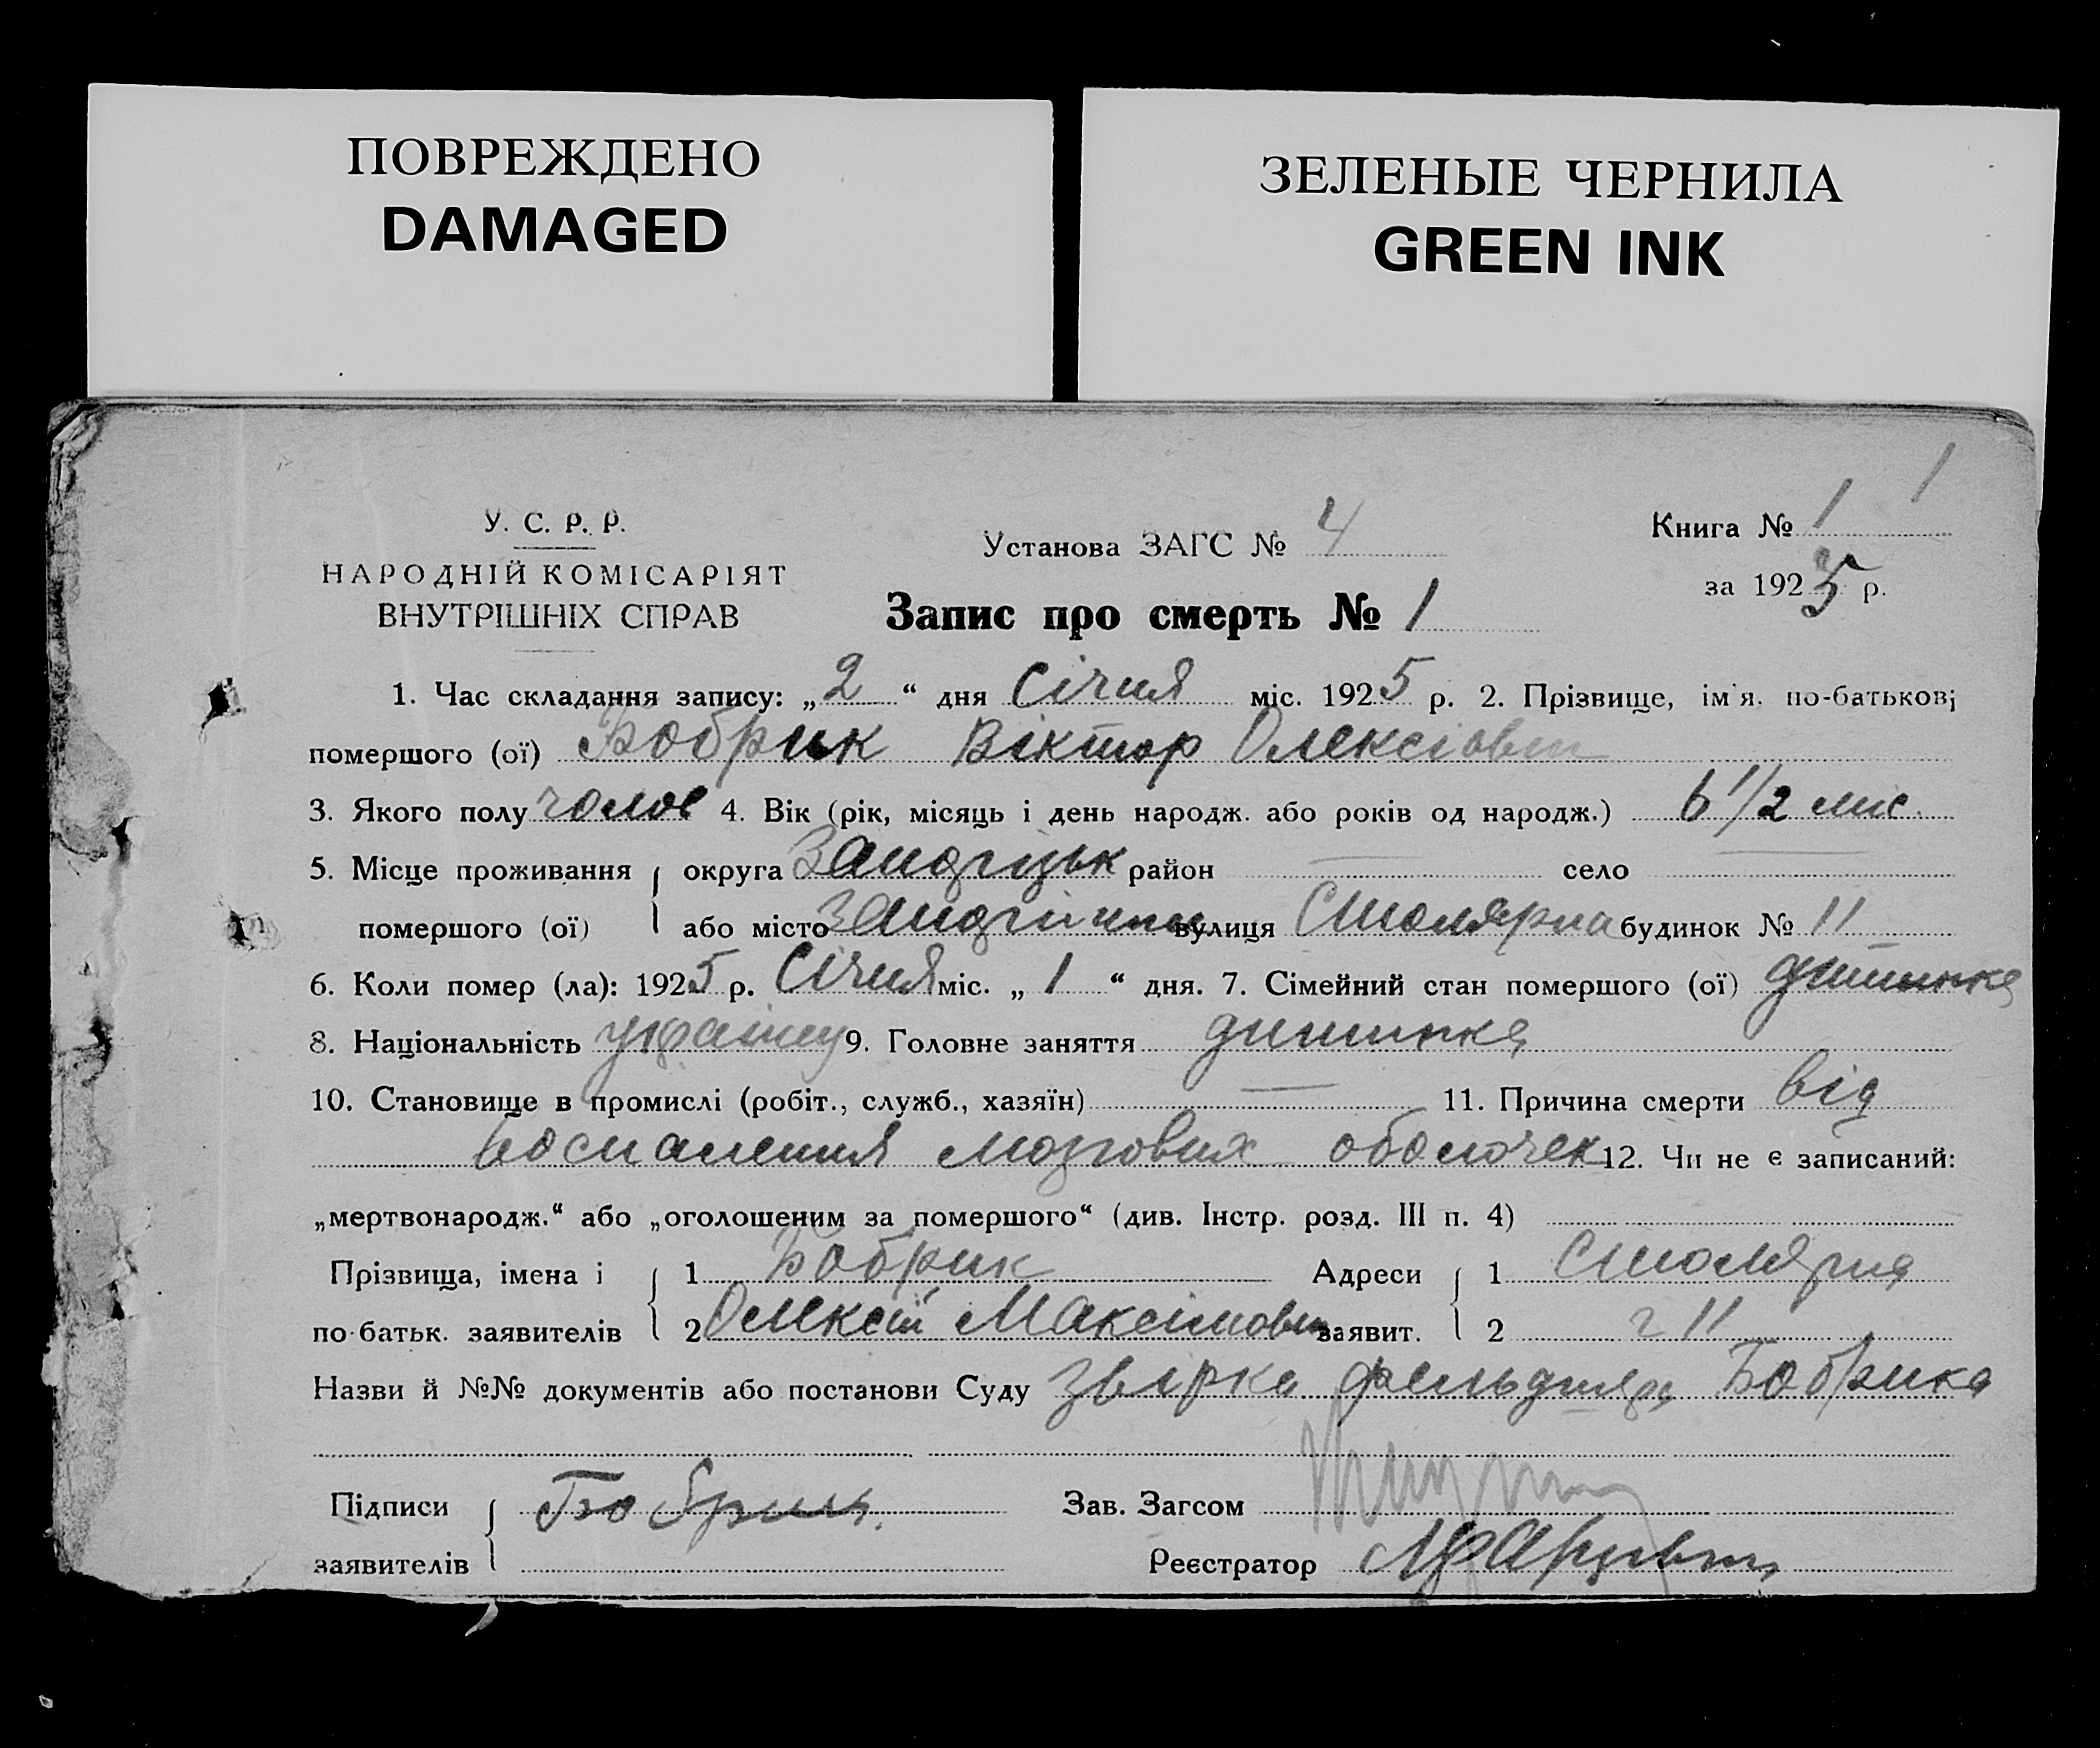 ПОВРЕЖДЕНО
DAMAGED
ЗЕЛЕНЫЕ ЧЕРНИЛА
GREEN INK
1
У. С. Р. Р.
НАРОДНІЙ КОМІСАРІЯТ
ВНУТРІШНІХ СПРАВ
Установа ЗАГС № 4
Книга № 1
за 1925 р.
Запис про смерть № 1
1. Час складання запису: „2“ дня Січня міс. 1925 р. 2. Прізвище, ім'я, по-батькові
помершого (ої) Бобрик Віктор Олексіович
3. Якого полу чолов 4. Вік (рік, місяць і день народж. або років од народж.) 6 1/2 міс.
5. Місце проживання округа район — село —
помершого (ої) або місто вулиця Столярна будинок № 11
6. Коли помер (ла): 1925 р. Січня міс. „1“ дня. 7. Сімейний стан помершого (ої) дитинка
8. Національність 9. Головне заняття дитинка
10. Становище в промислі (робіт., служб., хазяїн) — 11. Причина смерти від
воспаления мозгових оболочек 12. Чи не є записаний:
„мертвонародж.“ або „оголошеним за помершого“ (див. Інстр. розд. III п. 4)
Прізвища, імена і 1 Бобрик Адреси 1 Столярна
по-батьк. заявителів 2 Олексій Максімович заявит. 2 11
Назви й №№ документів або постанови Суду фельдшера Бобрика
Підписи Бобрик. Зав. Загсом
заявителів Реєстратор